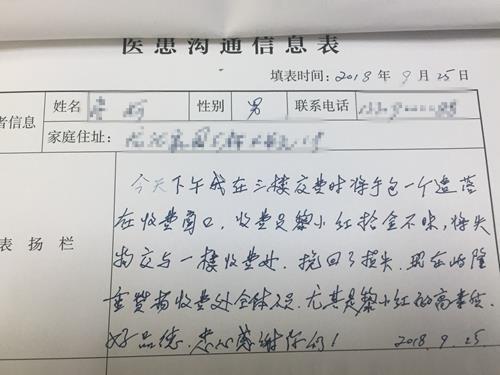 医患沟通信息表
填表时间：2018年9月25日
者信息 姓名 性别 男 联系电话
家庭住址：
今天下午我在三楼交费时将手包一个遗落
在收费窗口，收费员黎小红拾金不昧，将失
表扬栏 物交与一楼收费处，挽回了损失，现在此隆
重赞扬收费处全体人员，尤其是黎小红的高素质
好品德，忠心感谢你们！ 2018.9.25